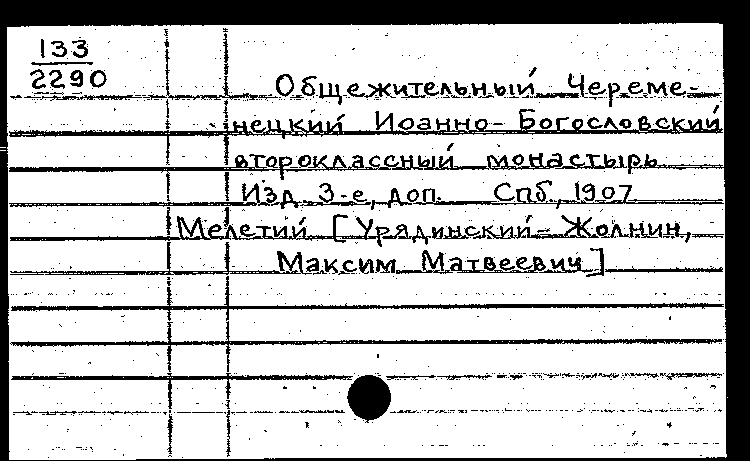 133
2290
Общежительный Череме-
нецкий Иоанно-Богословский
второклассный монастырь
Изд. 3-е, доп. Спб., 1907
Мелетий [Урядинский-Жолнин,
Максим Матвеевич]